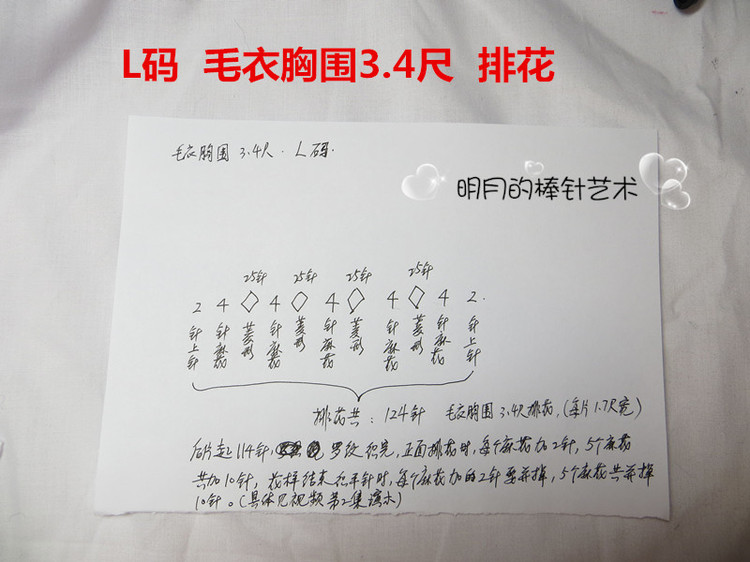 L码 毛衣胸围3.4尺 排花
毛衣胸围 3.4尺. L码.
明月的棒针艺术
25针 25针 25针 25针
2 4 ◇ 4 ◇ 4 ◇ 4 ◇ 4 2.
针上针 针麻花 菱形 针麻花 菱形 针麻花 菱形 针麻花 菱形 针麻花 针上针
排花共: 124针 毛衣胸围 3.4尺排花, (每片1.7尺宽)
后片起114针, 罗纹织完, 正面排花时, 每个麻花加2针, 5个麻花
共加10针, 花样结束织平针时, 每个麻花加的2针要并掉, 5个麻花共并掉
10针。(具体见视频第2集演示)